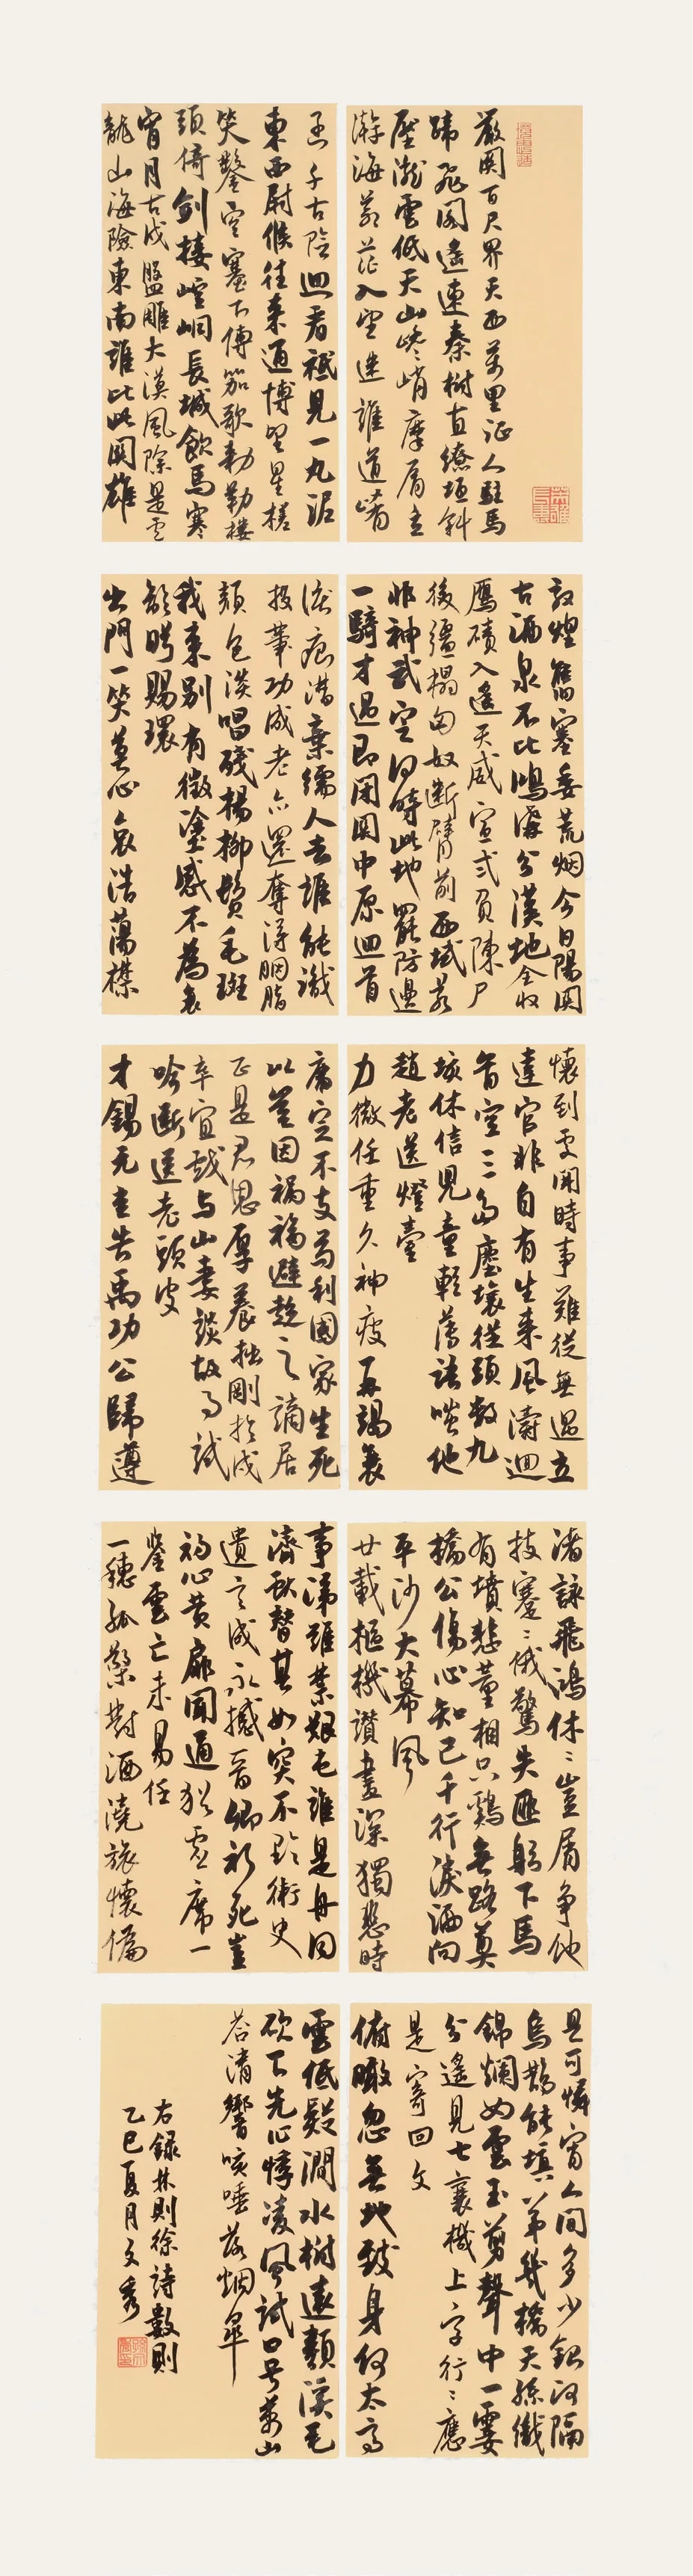 嚴關百尺界天西萬里征人駐馬
蹄飛閣遥連秦樹直繚垣斜
壓隴雲低天山巉峭摩肩立
瀚海蒼茫入望迷誰道崤
函千古險迴看祗見一丸泥
東西尉候往来通博望星槎
笑鑿空塞下傳笳歌勅勒樓
頭倚劍接崆峒長城飲馬寒
宵月古戍盤雕大漠風除是盧
龍山海險東南誰比此關雄
敦煌舊塞委荒烟今日陽關
古酒泉不比鴻溝分漢地全收
雁磧入遥天威宣貳負陳尸
後疆榻匈奴斷臂前西域若
非神武定何時此地罷防邊
一騎才過即閉關中原迴首
淚痕潸棄繻人去誰能識
投筆功成老亦還奪得胭脂
顔色淡唱殘楊柳鬢毛斑
我来别有徵塗感不為衰
齡盼賜環
出門一笑莫心哀浩蕩襟
懷到處開時事難從無過立
達官非自有生来風濤迴
首空三島塵壤從頭數九
垓休信兒童輕薄語嗤他
趙老送燈臺
力微任重久神疲再竭衰
庸定不支苟利國家生死
以豈因禍福避趨之謫居
正是君恩厚養拙剛於戍
卒宜戲与山妻談故事試
吟斷送老頭皮
才錫元圭告禹功公歸遵
渚詠飛鴻休〻豈屑争他
技蹇〻俄驚失匪躬下馬
有墳悲董相只鷄無路奠
橋公傷心知己千行淚洒向
平沙大幕風
廿載樞機讚畫深獨悲時
事涕難禁艱屯誰是舟同
濟獻替其如突不黔衛史
遺言成永憾晉卿祈死豈
初心黄扉聞道猶虚席一
鑒雲亡未易任
一穗孤檠對酒澆旅懷偏
且可憐宵人間多少銀河隔
烏鵲能填第幾橋天孫織
錦爛如雲玉剪聲中一霎
分遥見七襄機上字行〻應
是寄回文
俯瞰忽無地致身何太高
雲低疑澗水樹遠類溪毛
欲下先心悸凌風試口号萬山
答清響咳唾落烟皋
右録林則徐詩數則
乙巳夏月文秀